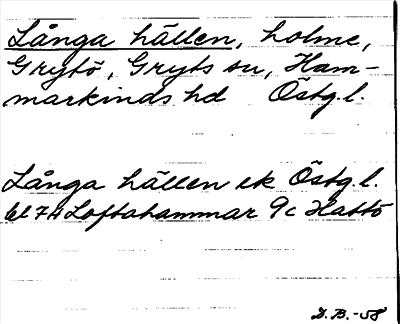 Långa hällen, holme,
Grytö, Gryts sn, Ham-
markinds hd Östg.l.
Långa hällen ek Östg.l.
bl 7H Loftahammar 9c Hattö
D.B.-58